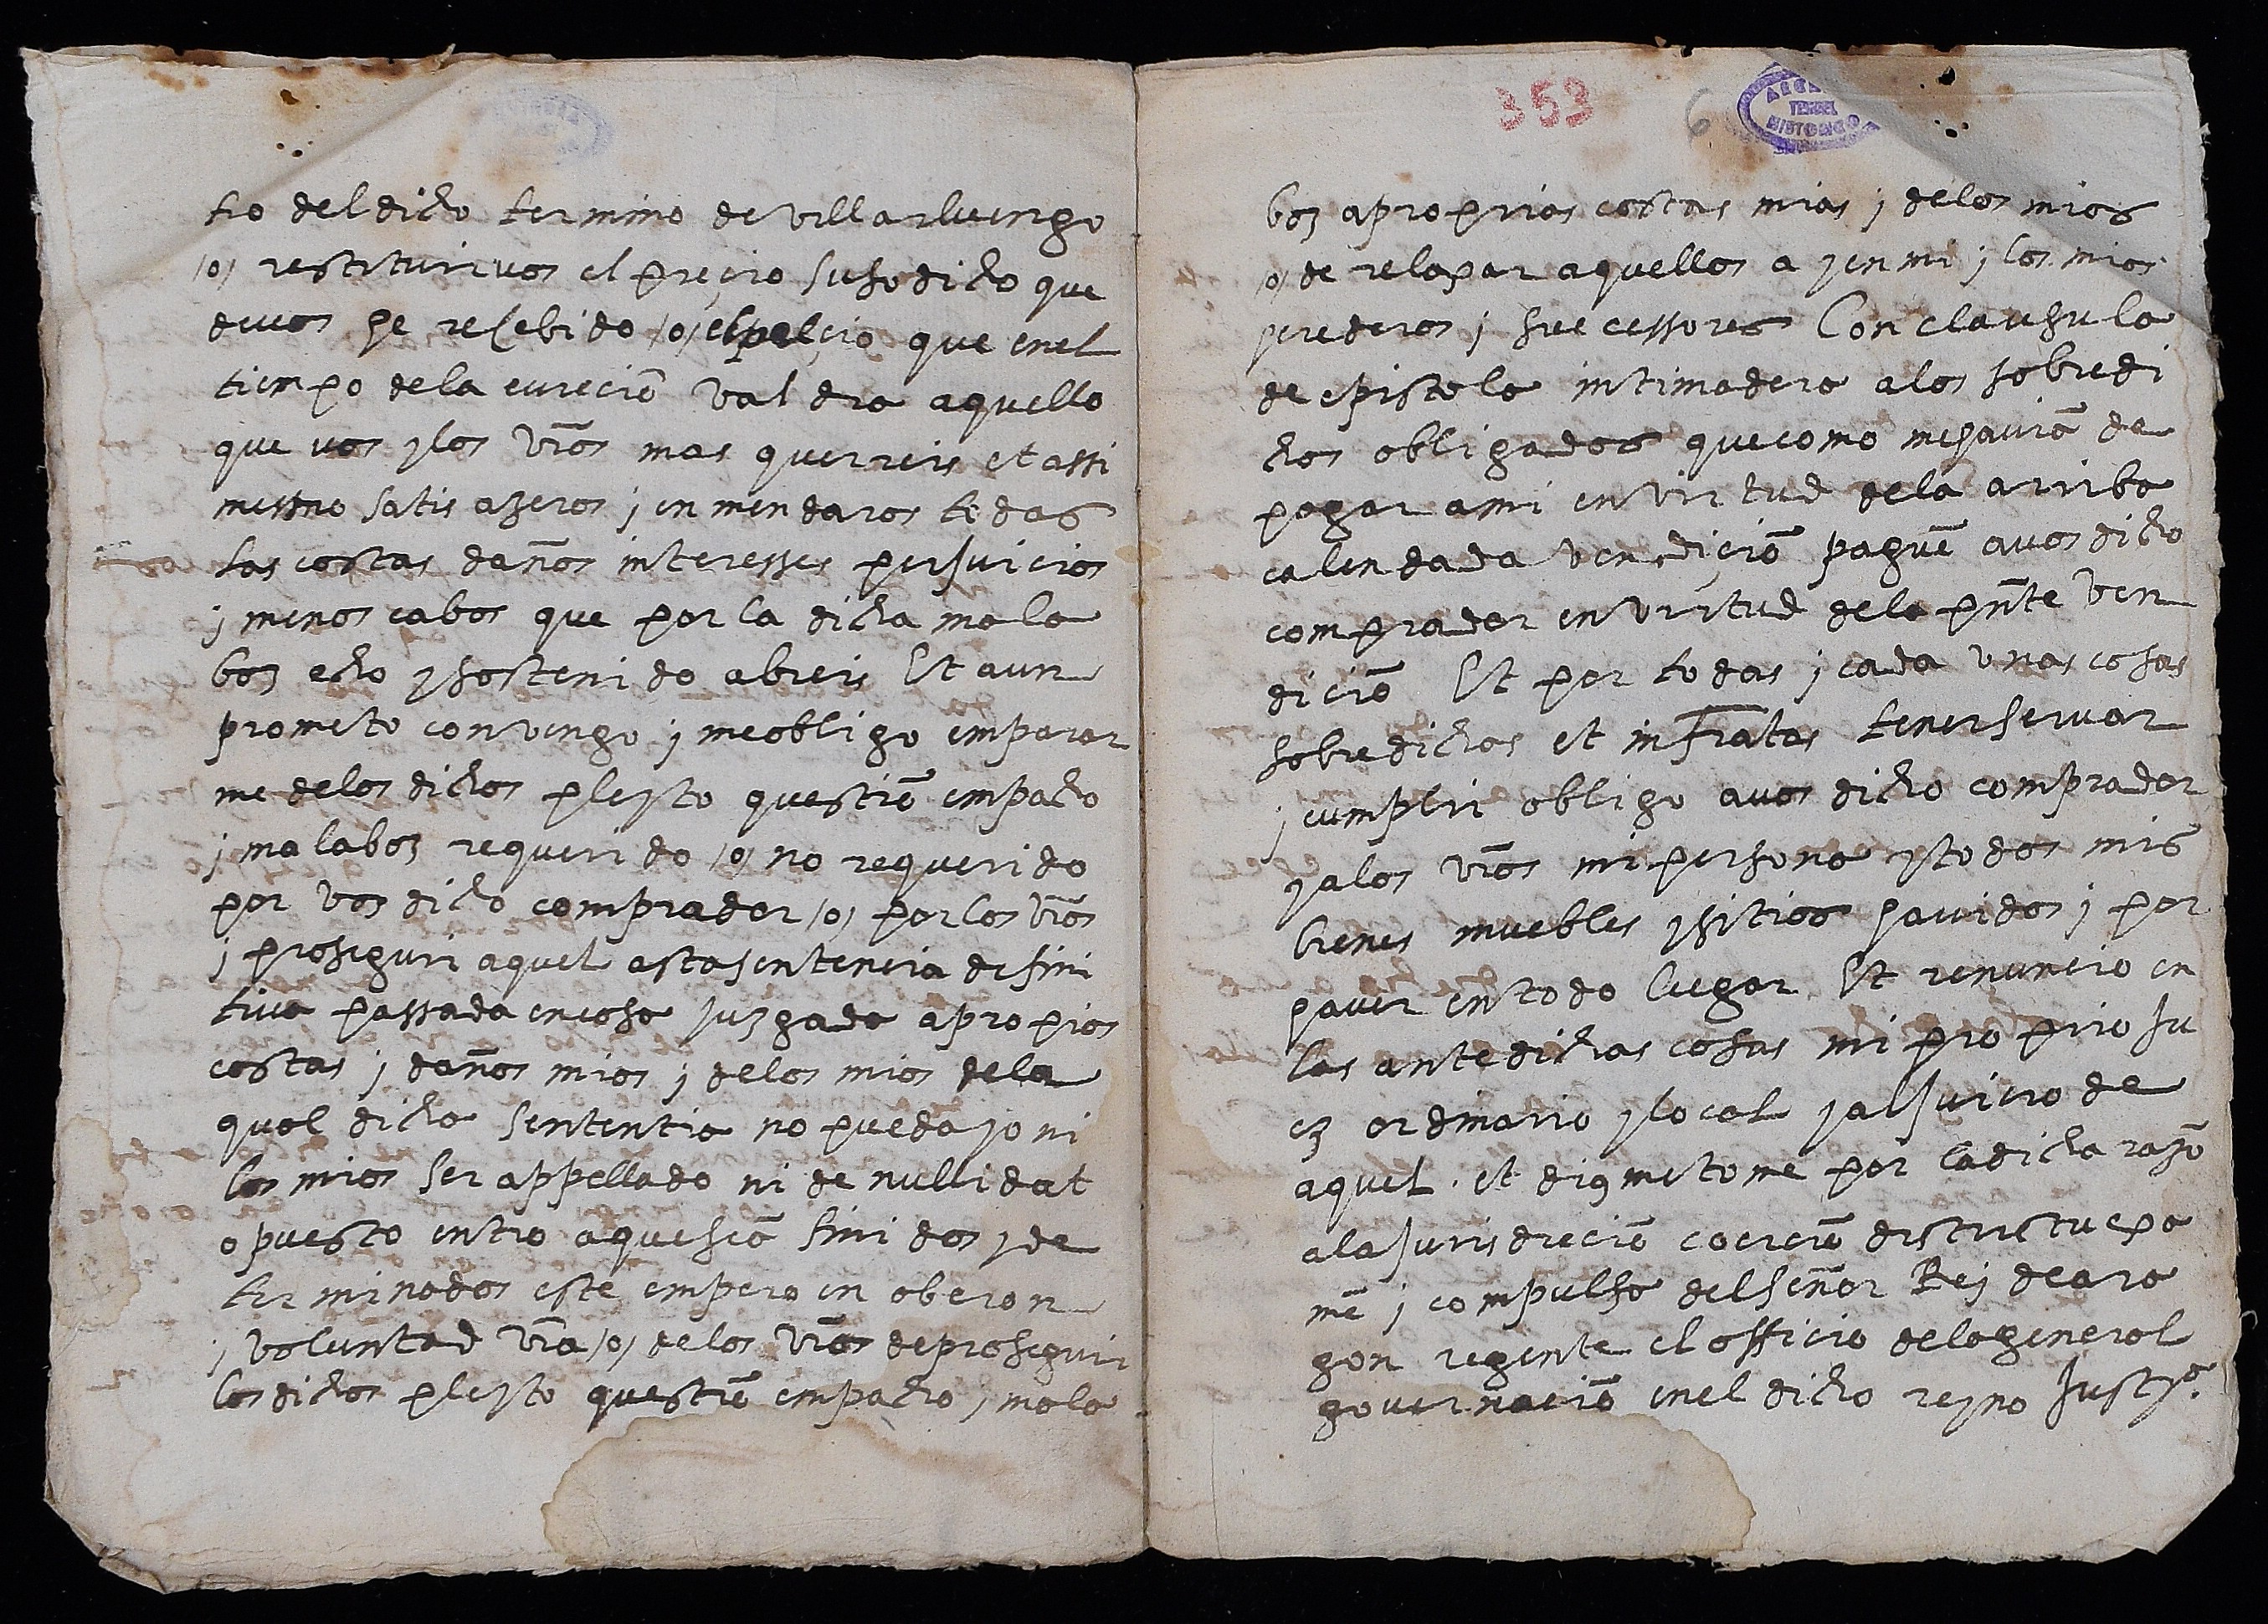 tro del dicho termino de villarluengo
/o/ restituir vos el preçio susodicho que
de vos he reçebido /o/ el preçio que en el
tiempo de la evictiō valdra aquello
que vos y los vr̄os mas querreis et assi
mesmo satisazeros y enmendaros todas
las costas daños interesses perjuicios
y menos cabos que por la dicha mala
boz echo y sostenido abreis Et aun
prometo convengo y me obligo emparar
me de los dichos pleyto questiō empacho
y mala boz requerido /o/ no requerido
por vos dicho comprador /o/ por los vr̄os
y proseguir aquel asta sentencia defini
tiva passada en cosa juzgada a propios
costas y daños mios y de los mios de la
qual dicha sententia no pueda yo ni
los mios ser appellado ni de nullidat
opuesto entro aquesean finidos y de
terminados este empero en
y voluntad vr̄a /o/ de los vr̄os de proseguir
los dichos pleyto questiō empacho y mala
353
6
HISTORICO
boz a proprias costas mias y de los mios
/o/ de relaxar aquellos a y en mi y los mios
herederos y successores Con clausula
de epistola intimadera a los sobredi
chos obligados que como me havian de
pagar a mi en virtud de la arriba
calendada vendiçiō paguē a vos dicho
comprador en virtud de la pn̄te ven
diciō Et por todas y cada unas cosas
sobredichas et infr̄atas tener servar
y cumplir obligo a vos dicho comprador
y a los vr̄os mi persona y todos mis
bienes muebles y sitios havidos y por
haver en todo lugar Et renuncio en
las antedichas cosas mi proprio ju
ez ordinario y local y al juicio de
aquel et diusmetome por la dicha razō
a la jurisdiciō cocrciō districtu exa
mē y compulsa del señor Rey de ara
gon regente el officio de la general
governaciō en el dicho reyno Just.ª